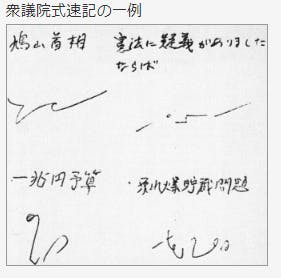 衆議院式速記の一例
鳩山首相
憲法に疑義がありました
ならば
一兆円予算
・原水爆貯蔵問題